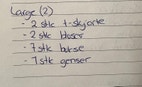 Large (2)
- 2 stk t-skjorte
- 2 stk bluser
- 7 stk bukse
- 1 stk genser